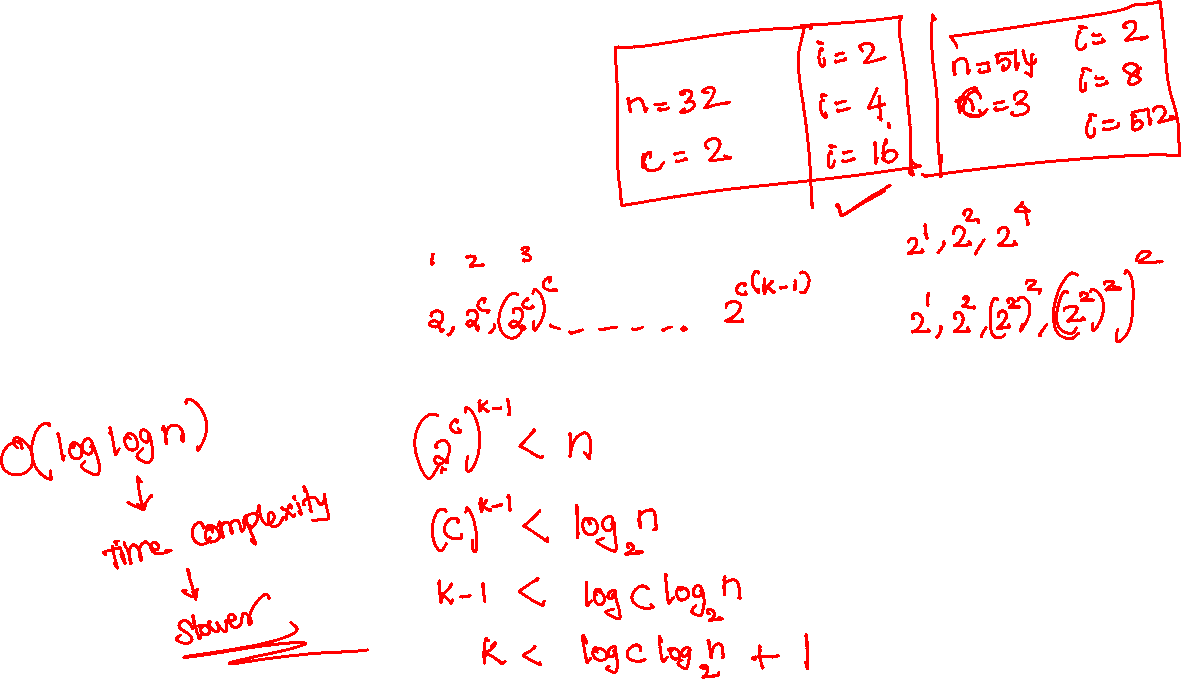 n=32
c=2
i=2
i=4
i=16
n=514
C=3
i=2
i=8
i=512
2¹, 2², 2⁴
1 2 3
2, 2ᶜ, (2ᶜ)ᶜ - - - - - - - . 2^c(k-1)
2¹, 2², (2²)², ((2²)²)²
O(log log n)
↓
Time Complexity
↓
Slower
(2^c)^k-1 < n
(c)^k-1 < log₂n
k-1 < log c log₂n
k < log c log₂n + 1